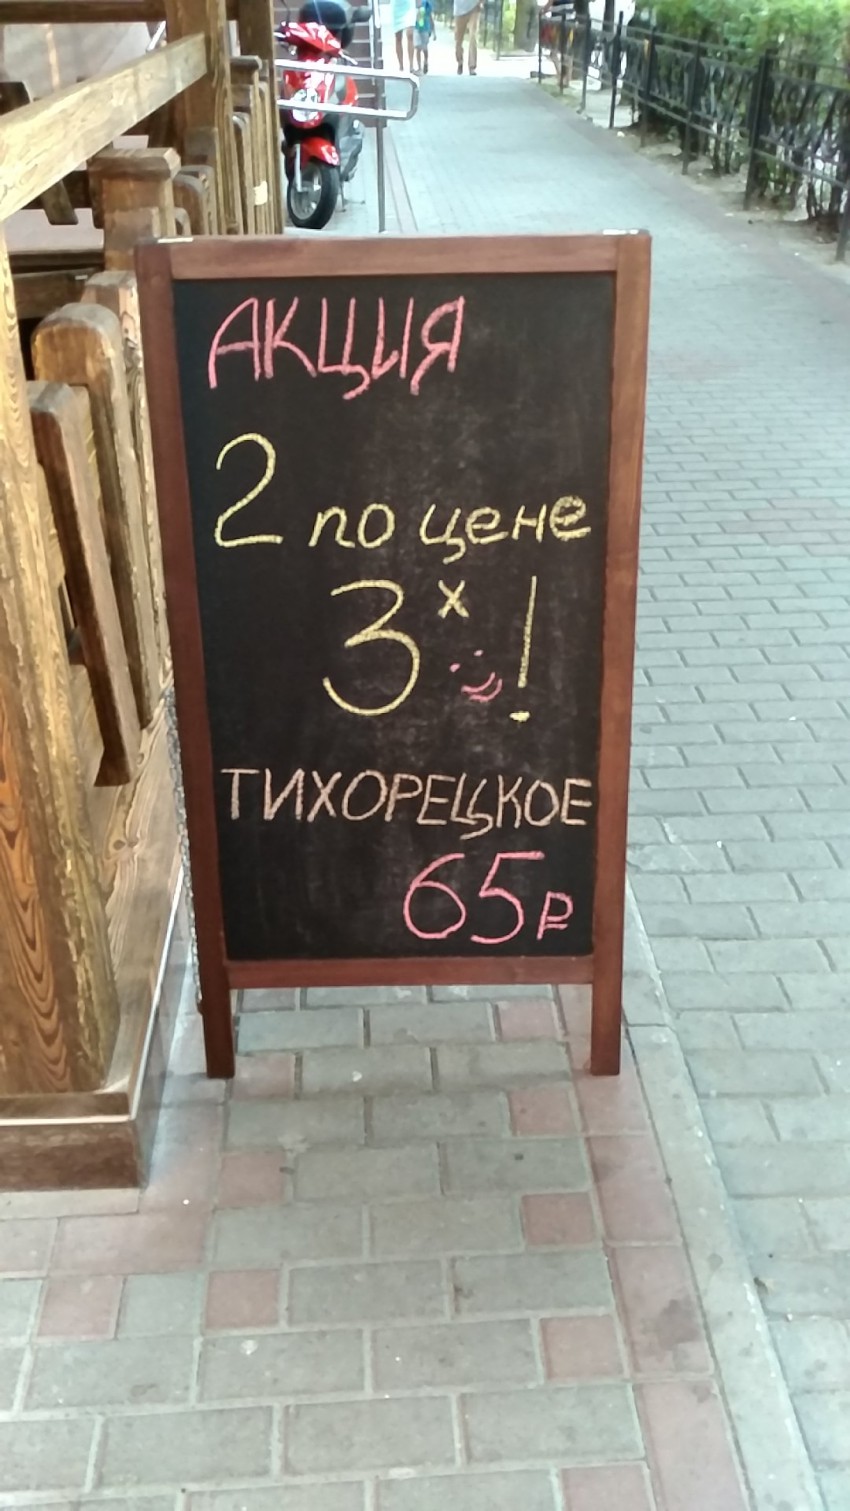 АКЦИЯ
2 по цене
3х!
ТИХОРЕЦКОЕ
65р